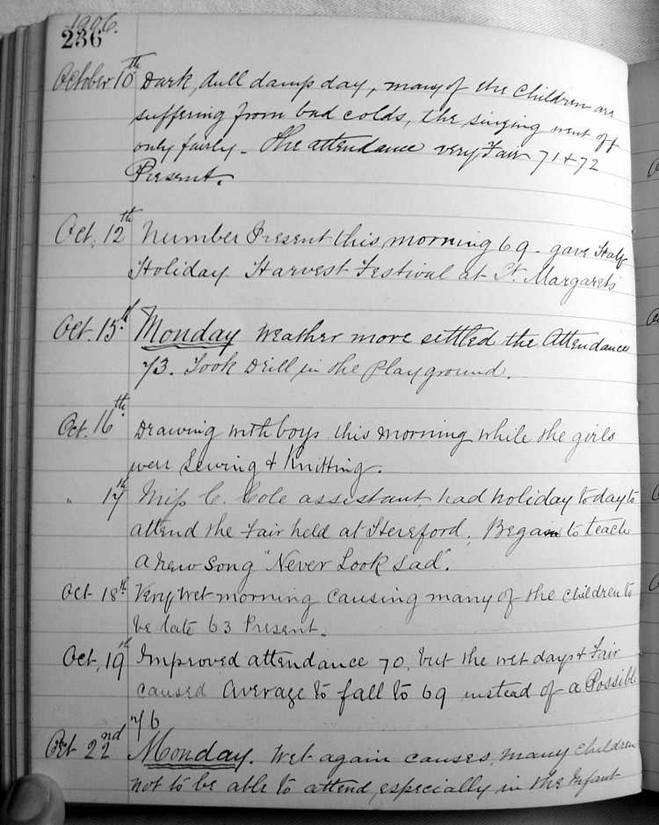 1906.
236
October 10th Dark, dull damp day, many of the Children are
suffering from bad colds, the singing went off
only fairly - The attendance very Fair 71 & 72
Present.
Oct. 12th Number Present this morning 69 - gave Half
Holiday Harvest Festival at St. Margarets
Oct. 15th Monday Weather more settled the Attendance
73. Took Drill in the Playground.
Oct. 16th. Drawing with boys this morning while the girls
were Sewing & Knitting.
" 17th Miss C. Cole assistant, had holiday today to
attend the Fair held at Hereford. Began to teach
a new Song "Never Look Sad".
Oct 18th Very wet morning causing many of the children to
be late 63 Present.
Oct, 19th Improved attendance 70, but the wet days & Fair
caused Average to fall to 69 instead of a Possible
76
Oct 22nd Monday. Wet again causes, many children
not to be able to attend, especially in the Infant